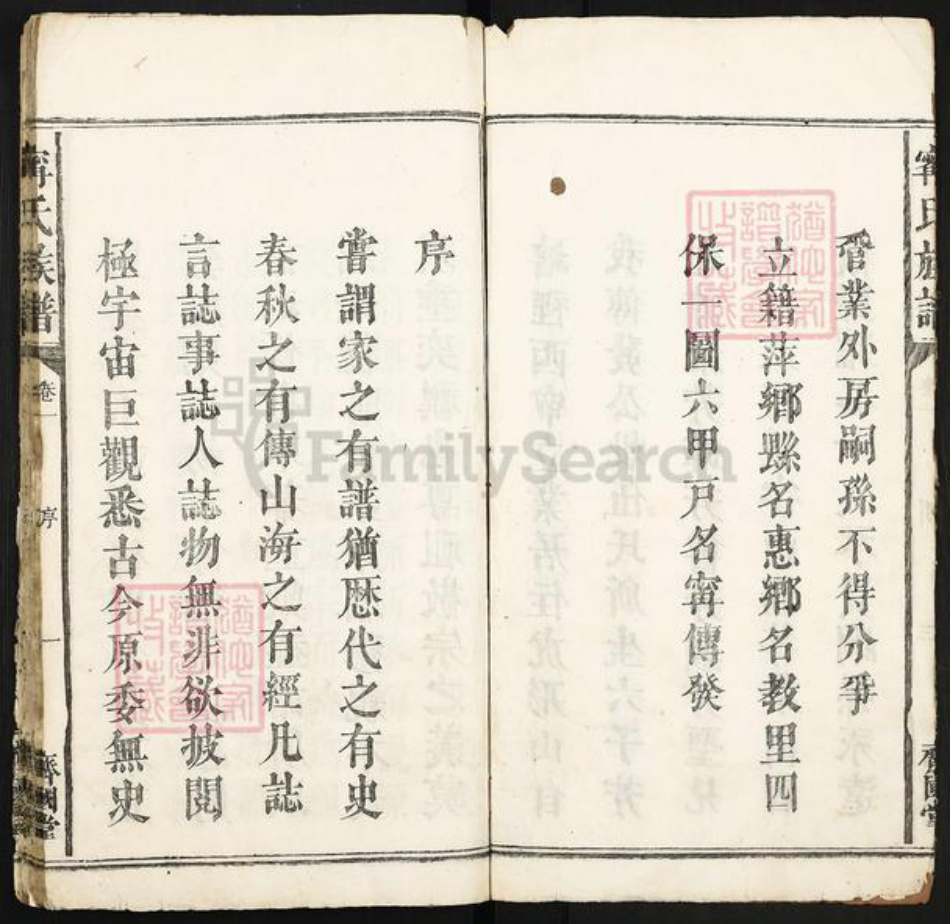 甯氏族譜
管業外房嗣孫不得分爭
立籍萍鄉縣名惠鄉名教里四
保一圖六甲戶名甯傳發
序
嘗謂家之有譜猶歷代之有史
春秋之有傳山海之有經凡誌
言誌事誌人誌物無非欲披閱
極宇宙巨觀悉古今原委無史
甯氏族譜
卷一
序
一
齊國堂
FamilySearch